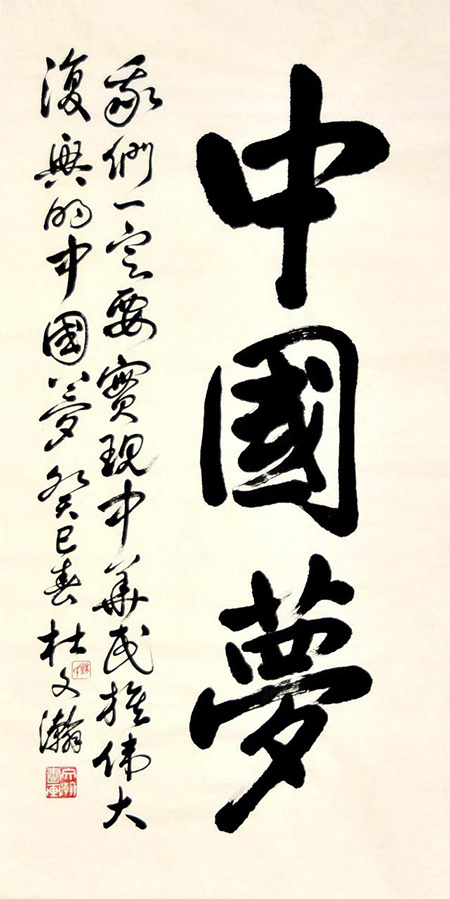 中國夢
我們一定要實現中華民族偉大
復興的中國夢癸巳春杜文瀚